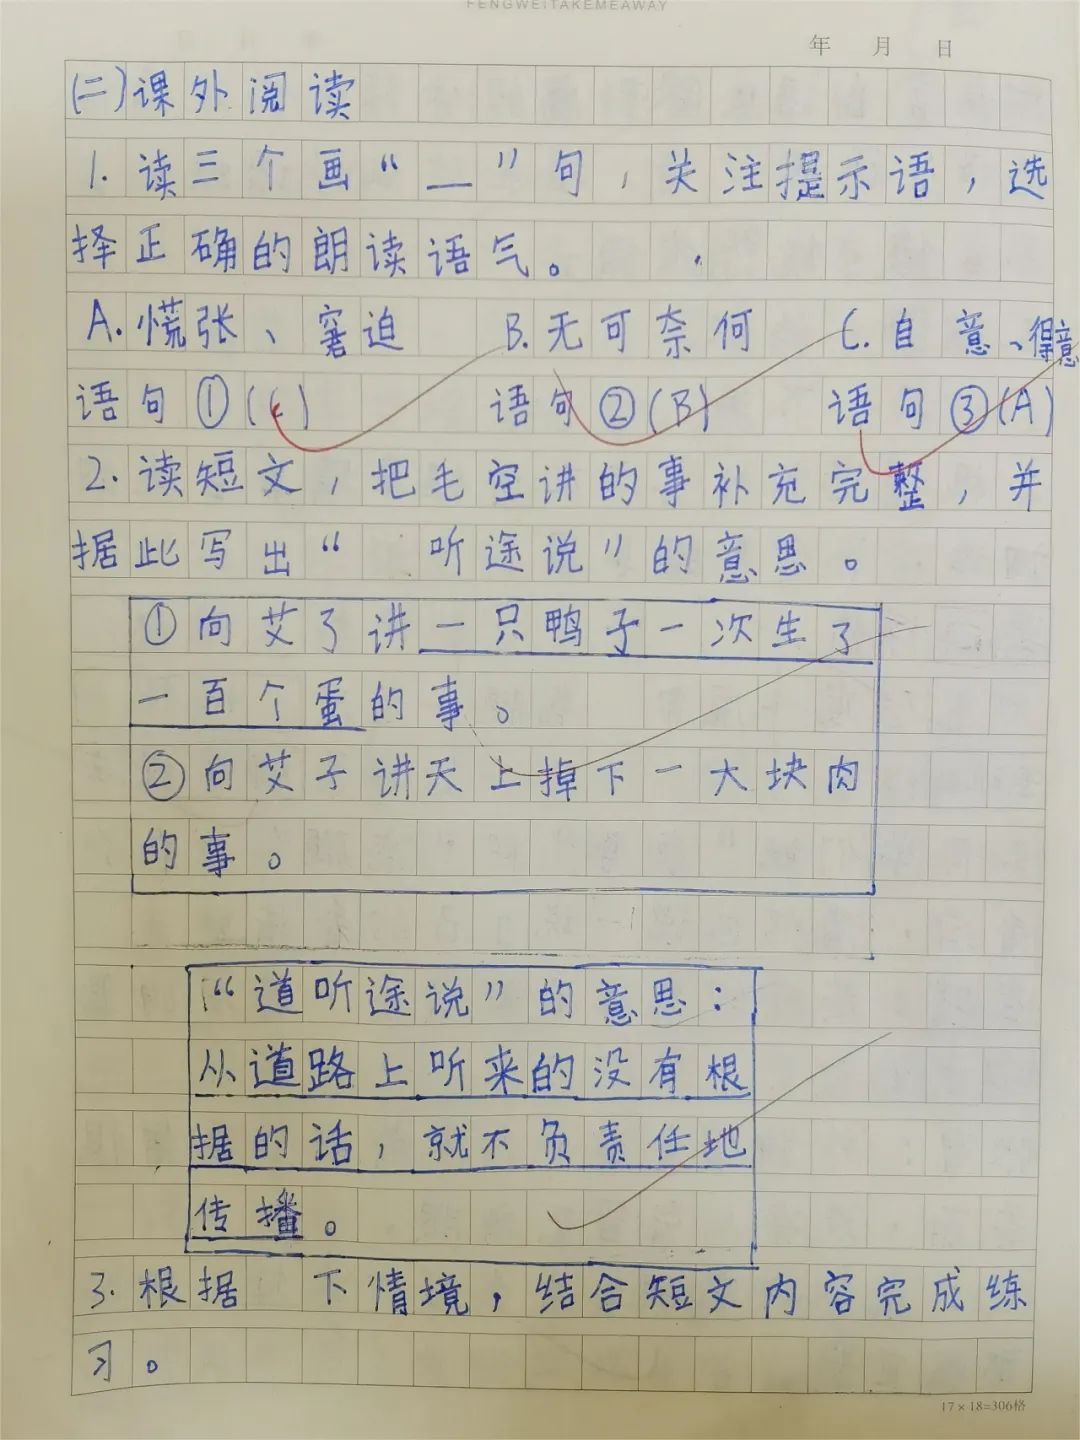 FENGWEITAKEMEAWAY
年 月 日
(二)课外阅读
1. 读三个画“__”句，关注提示语，选
择正确的朗读语气。
A. 慌张、窘迫 B. 无可奈何 C. 自意、得意
语句①(C) 语句②(B) 语句③(A)
2. 读短文，把毛空讲的事补充完整，并
据此写出“ 听途说”的意思。
①向艾了讲一只鸭子一次生了
一百个蛋的事。
②向艾子讲天上掉下一大块肉
的事。
“道听途说”的意思：
从道路上听来的没有根
据的话，就不负责任地
传播。
3. 根据 下情境，结合短文内容完成练
习。
17×18=306格